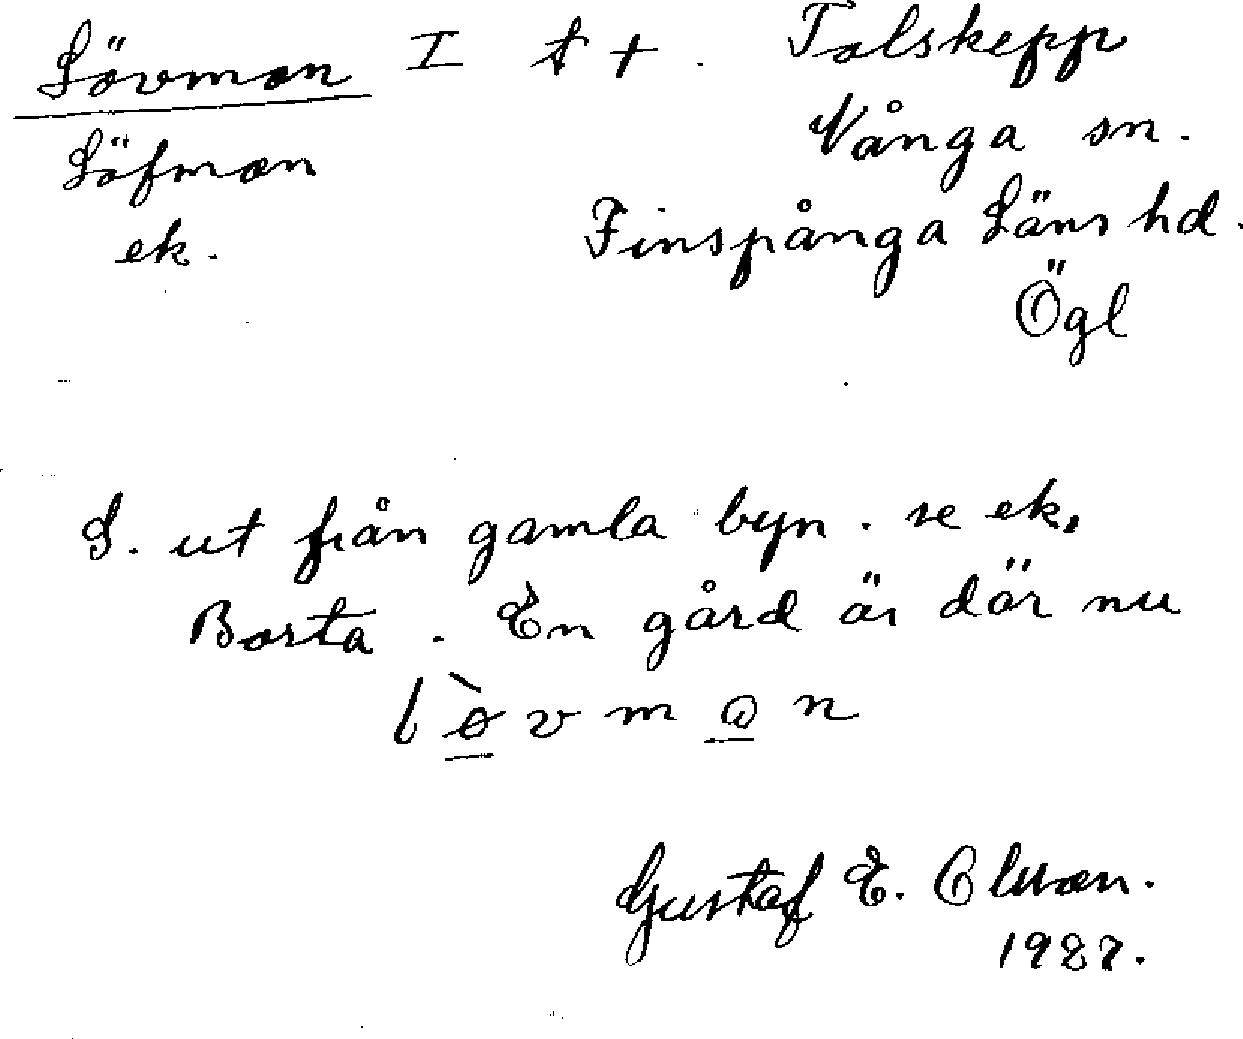 Lövmon I t +. Tolskepp
Löfmon Vånga sn.
ek. Finspånga Läns hd.
Ögl
S. ut från gamla byn. se ek.
Borta. En gård är där nu
Gustaf E. Olsson.
1927.